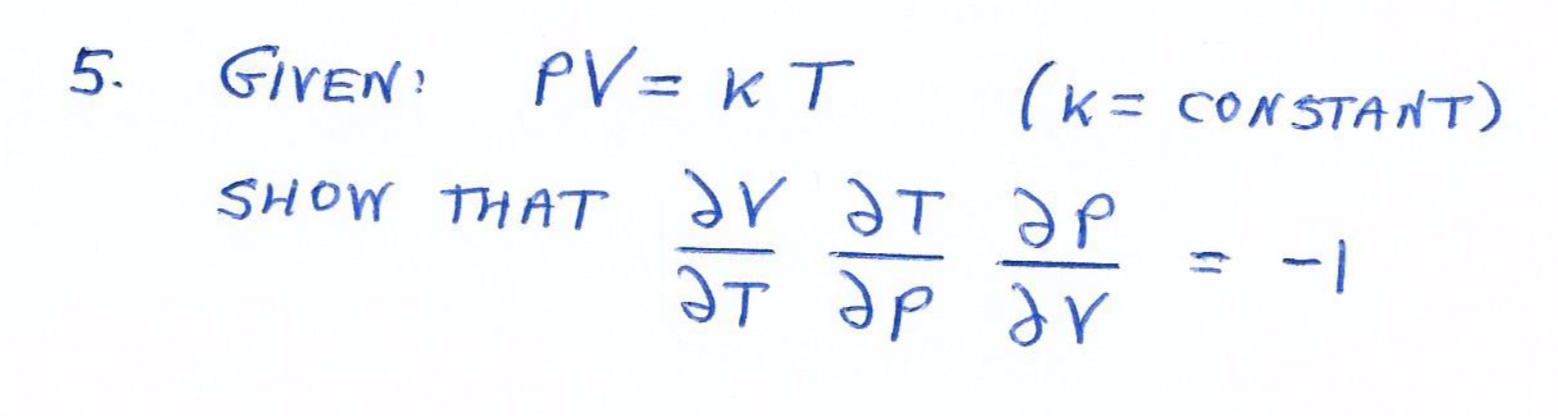 5. GIVEN: PV = KT (K = CONSTANT)
SHOW THAT ∂V/∂T ∂T/∂P ∂P/∂V = -1